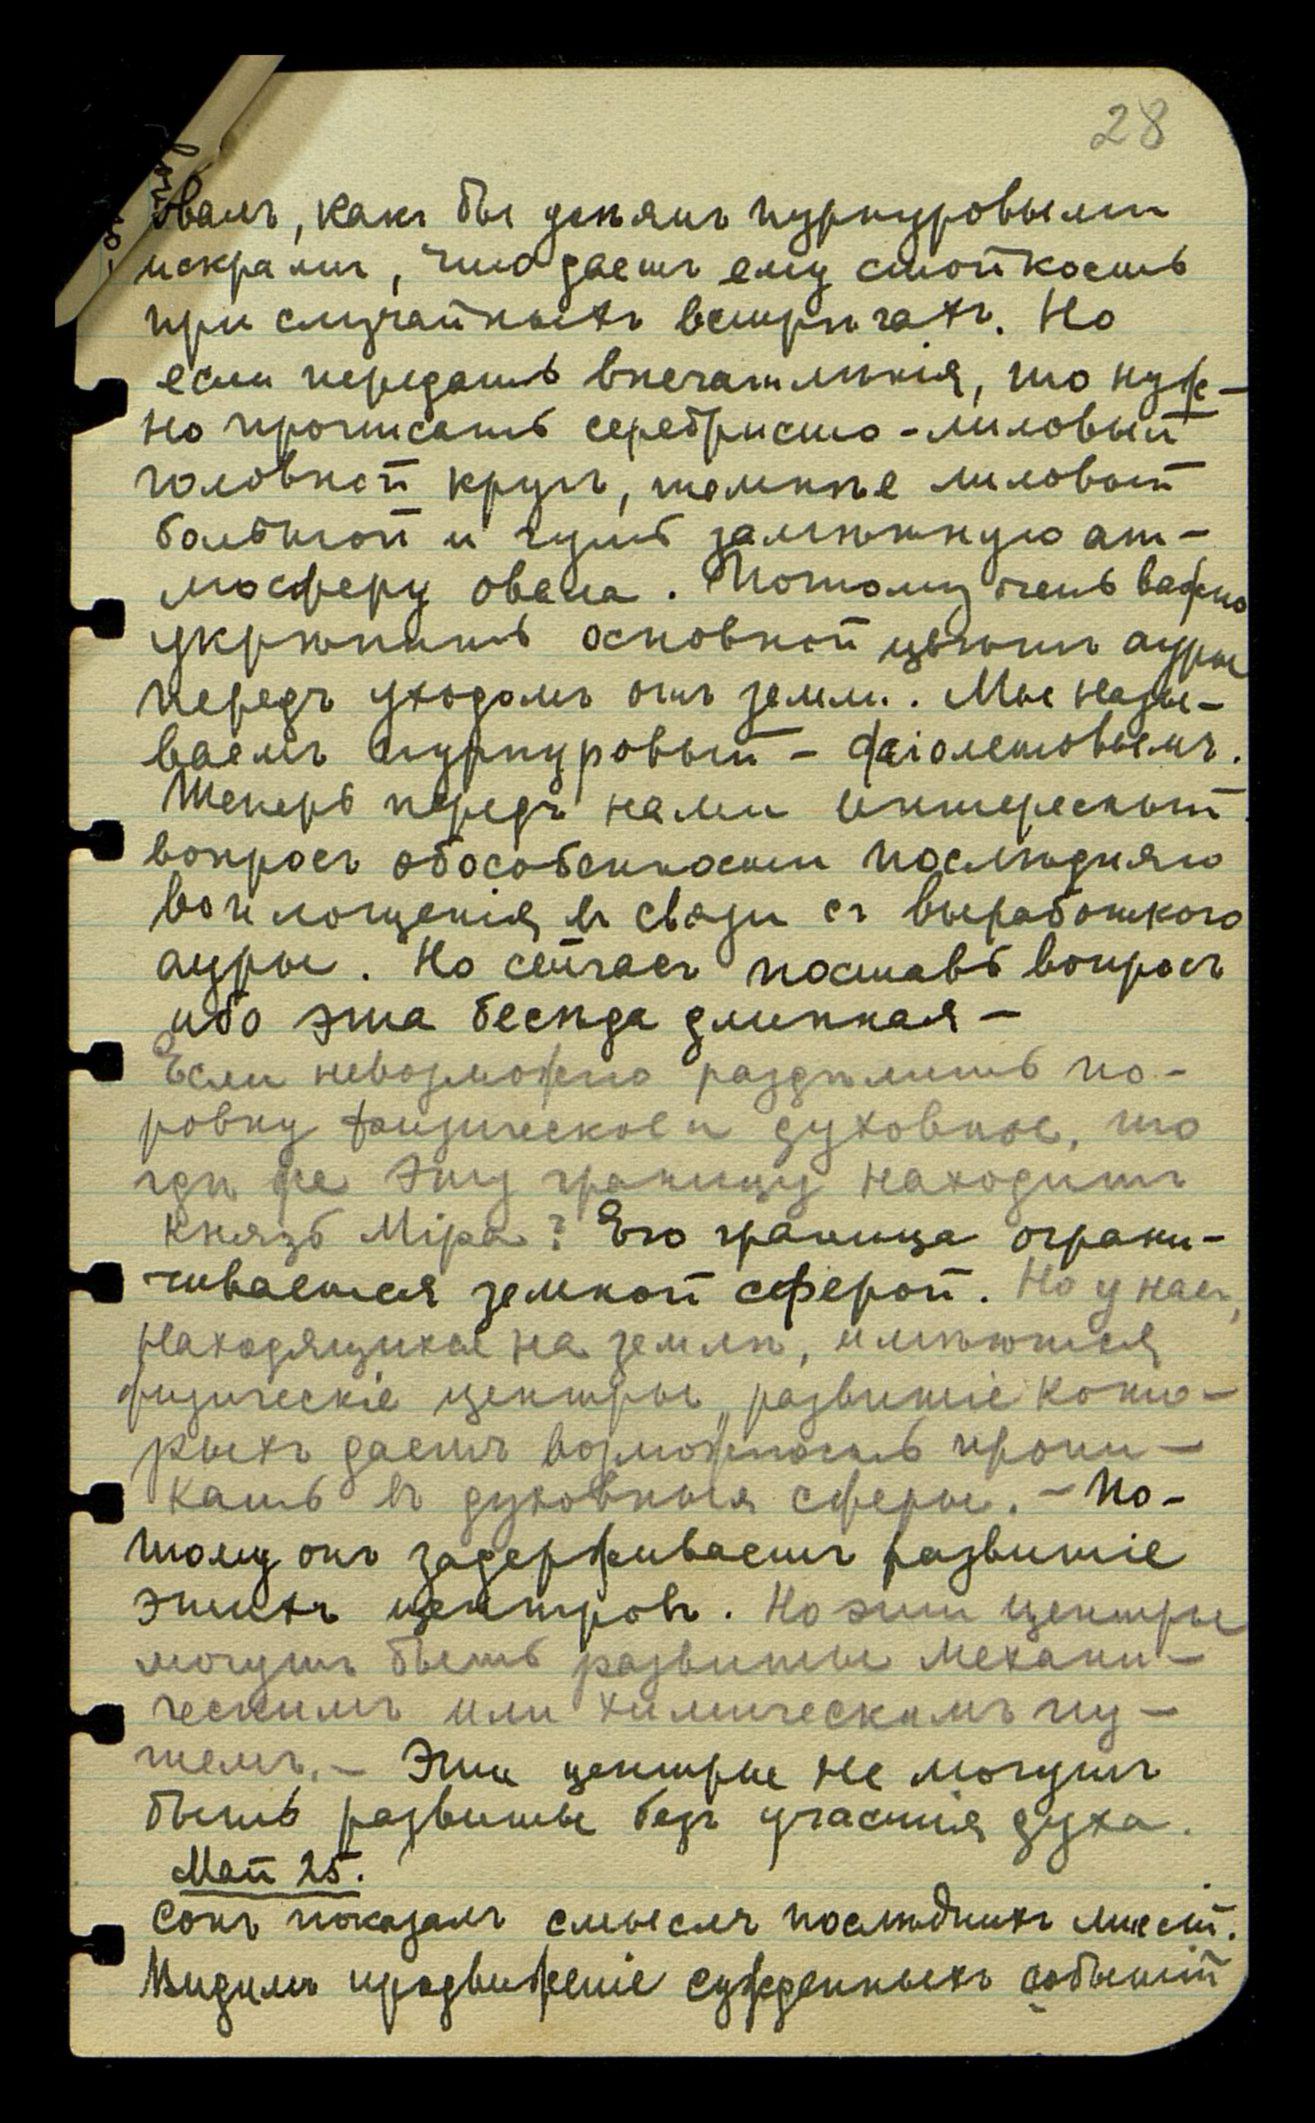 28
овалъ, какъ бы усѣянъ пурпуровыми
искрами, что даетъ ему стойкость
при случайныхъ встрѣчахъ. Но
если передать впечатлѣнія, то нуж-
но прописать серебристо-лиловый
головной кругъ, темнѣе лиловый
большой и чуть замѣтную ат-
мосферу овала. Потому очень важно
укрѣпить основной цвѣтъ ауры
передъ уходомъ отъ земли. Мы назы-
ваемъ пурпуровый - фіолетовымъ.
Теперь передъ нами интересный
вопросъ обособенности послѣдняго
воплощенія въ связи съ выработкою
ауры. Но сейчасъ поставь вопросъ
ибо эта бесѣда длинная -
Если невозможно раздѣлить по-
ровну физическое и духовное, то
гдѣ же эту границу находитъ
Князь Міра? Его граница ограни-
чивается земной сферой. Но у насъ,
находящихся на землѣ, имѣются
физическіе центры, развитіе кото-
рыхъ даетъ возможность прони-
кать въ духовныя сферы. - По-
тому онъ задерживаетъ развитіе
этихъ центровъ. Но эти центры
могутъ быть развиты механи-
ческимъ или химическимъ пу-
темъ. - Эти центры не могутъ
быть развиты безъ участія духа.
Май 25.
Сонъ показалъ смыслъ послѣднихъ мист.
Видимъ продвиженіе сужденныхъ событій